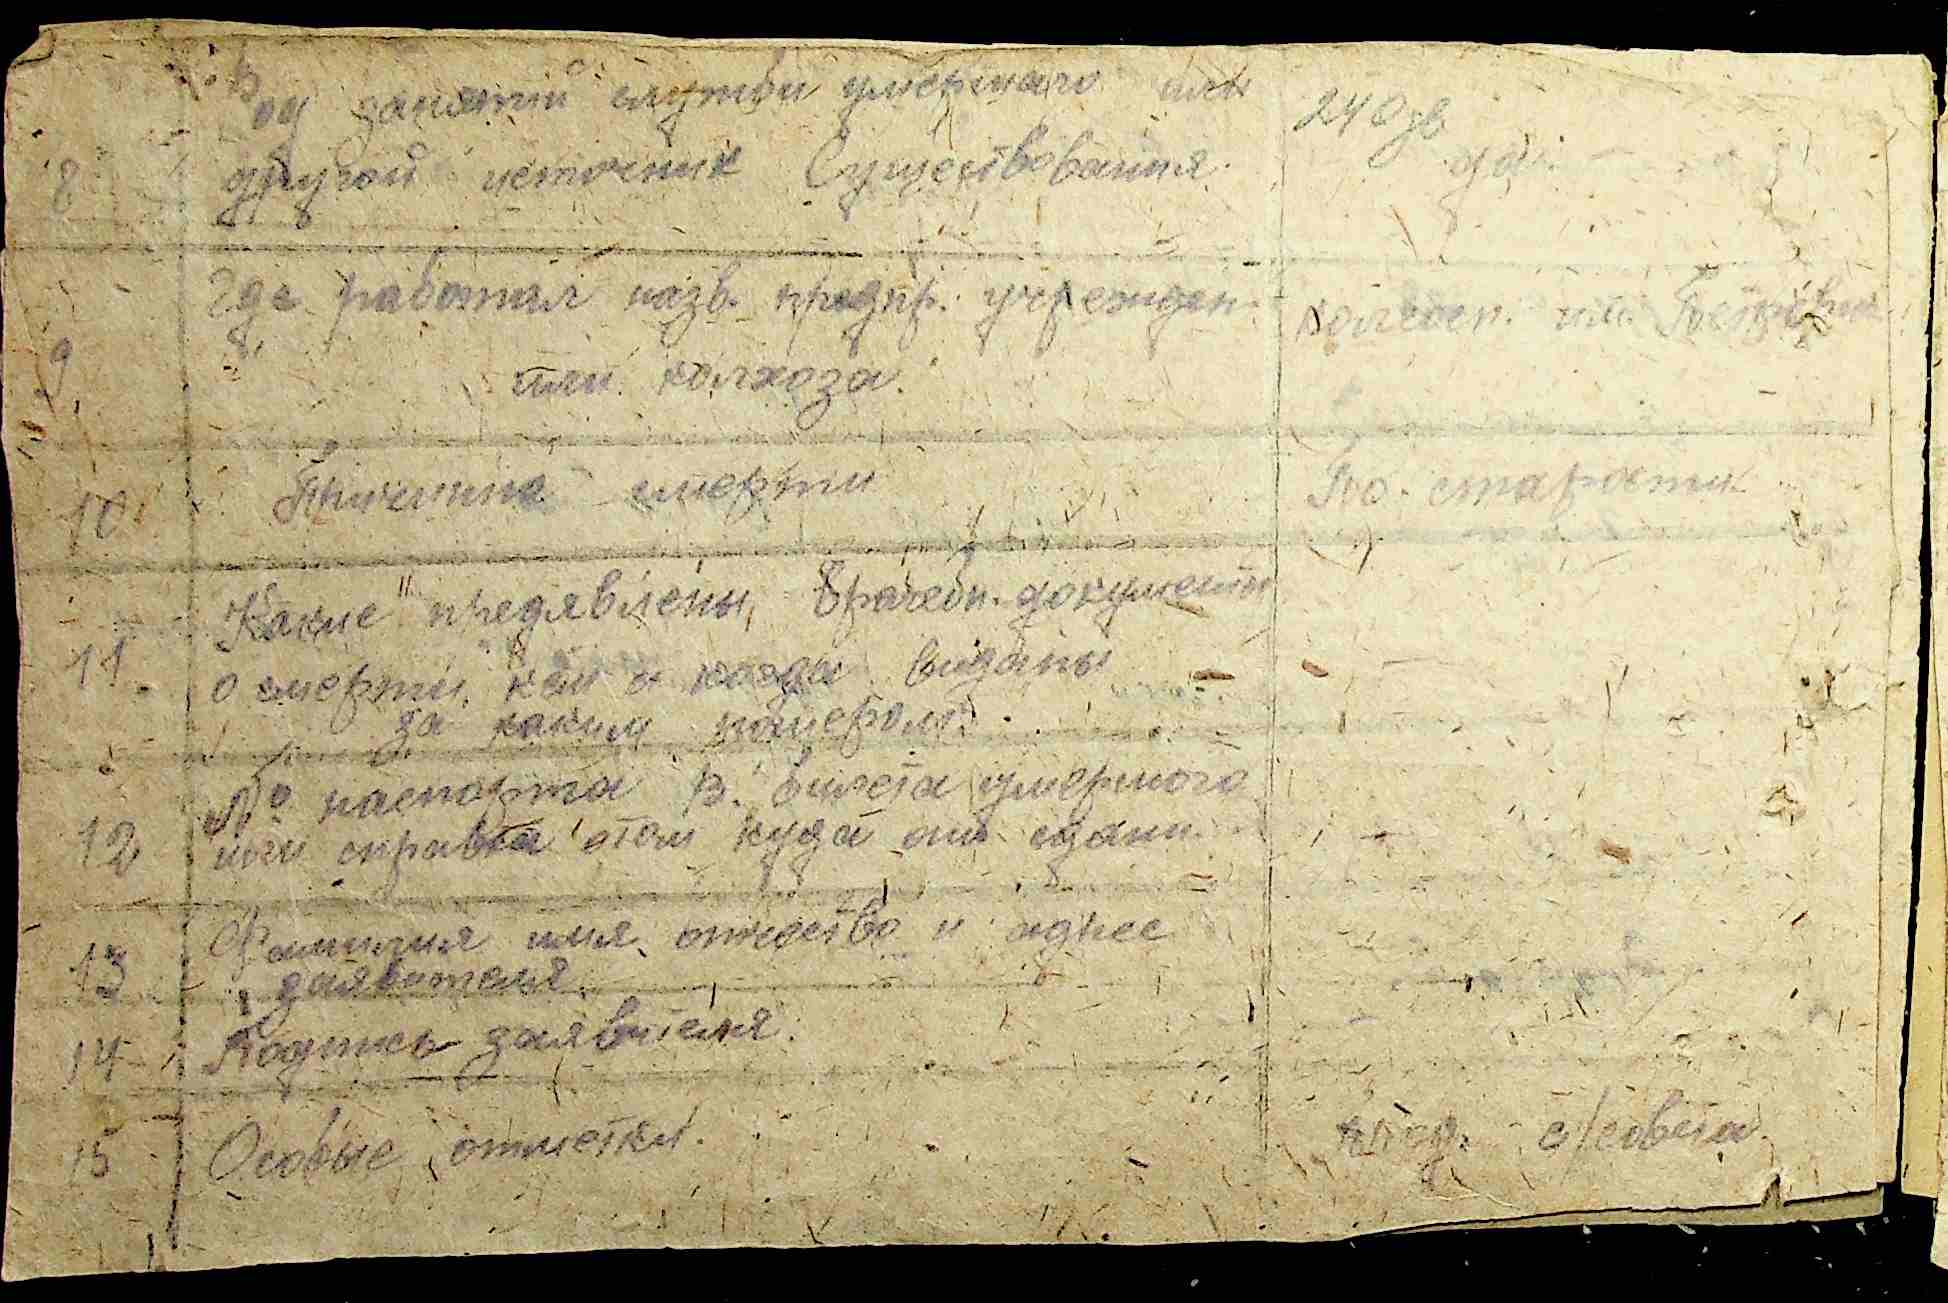 8 Род занятий службы умершаго или
другой источник Существования.
9 Где работал назв. предпр. учрежден. колхосп. им. Петровск
или колхоза.
10 Причина смерти По старости
11. Какие предявлены, врачебн. документы
о смерти, кем и когда виданы
за каким номером.
12 № паспорта В. билета умершого
или справка о том куда они сданы
13 Фамилия имя отчество и адрес
заявителя
14 Подпись заявителя.
15 Особые отметки. с/совета